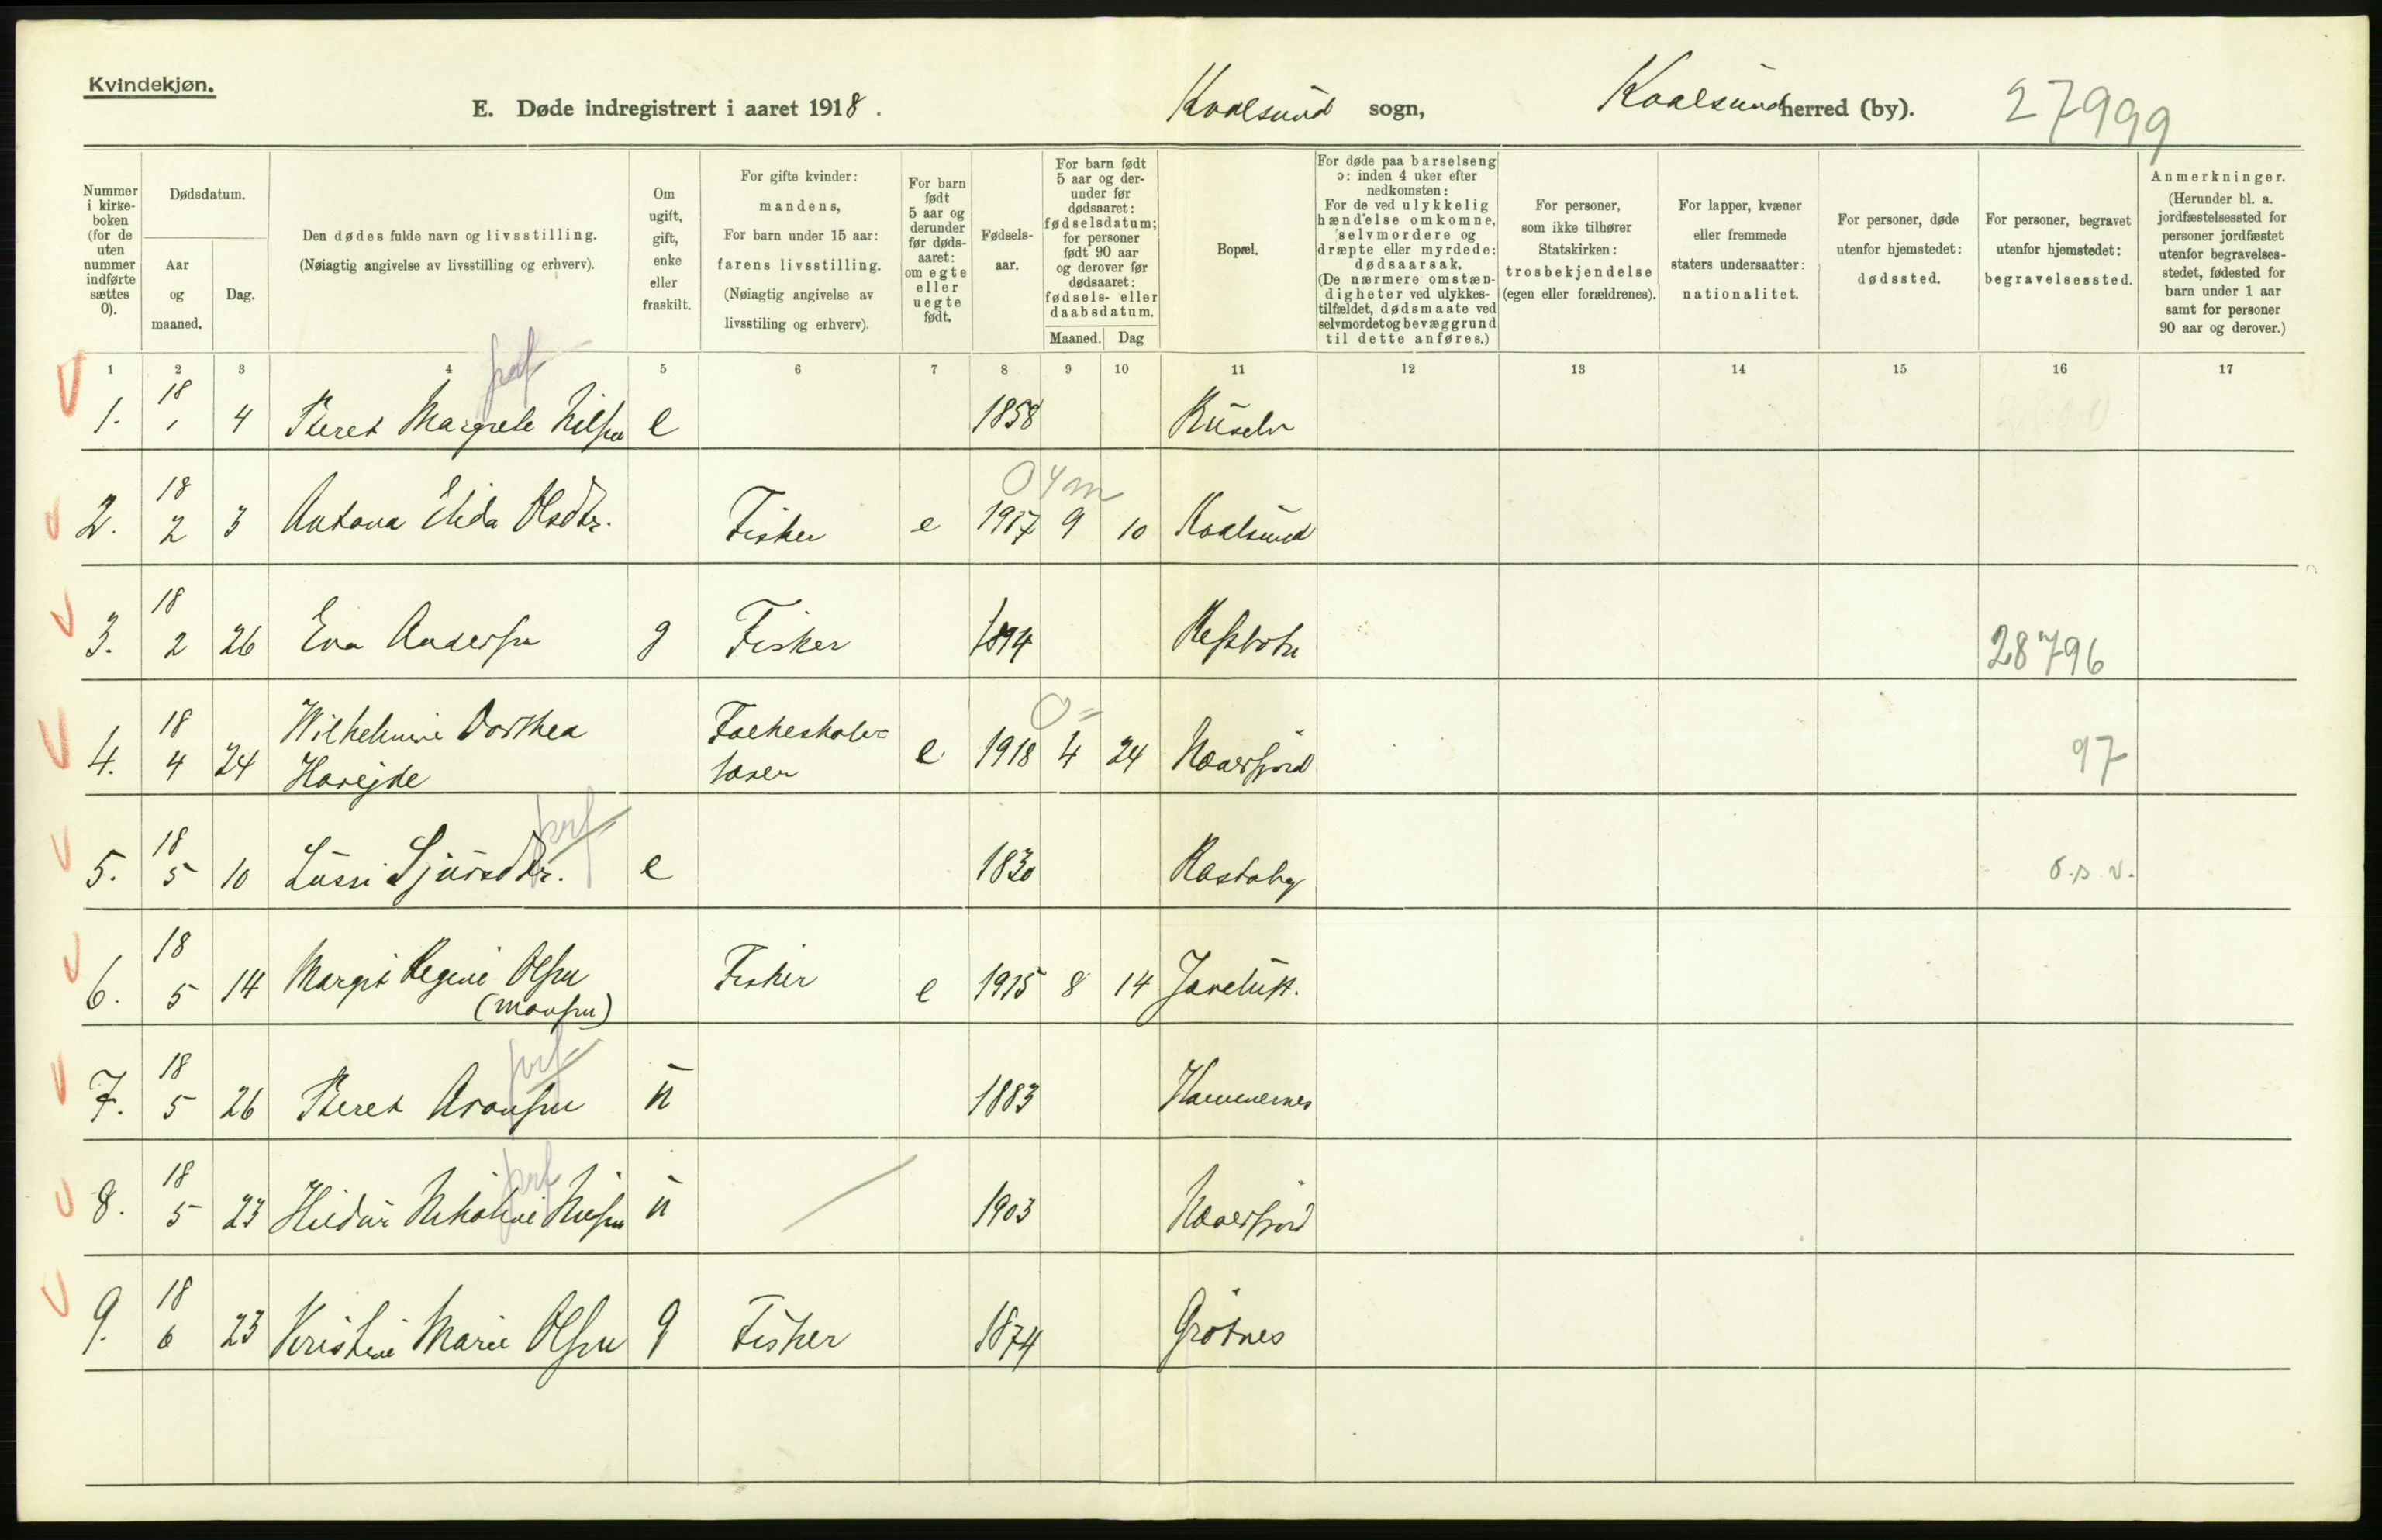 Kvindekjøn.
E. Døde indregistrert i aaret 1918. Kvalsund sogn, Kvalsund herred (by). 27999
Nummer i kirkeboken (for de uten nummer indførte sættes 0).
Dødsdatum.
Aar og maaned.
Dag.
Den dødes fulde navn og livsstilling.
(Nøiagtig angivelse av livsstilling og erhverv).
Om ugift, gift, enke eller fraskilt.
For gifte kvinder: mandens,
For barn under 15 aar: farens livsstilling.
(Nøiagtig angivelse av livsstiling og erhverv).
For barn født 5 aar og derunder før dødsaaret: om egte eller uegte født.
Fødselsaar.
For barn født 5 aar og derunder før dødsaaret: fødselsdatum; for personer født 90 aar og derover før dødsaaret: fødsels- eller daabsdatum.
Maaned. Dag
Bopæl.
For døde paa barselseng ɔ: inden 4 uker efter nedkomsten: For de ved ulykkelig hændelse omkomne, selvmordere og dræpte eller myrdede: dødsaarsak. (De nærmere omstændigheter ved ulykkestilfældet, dødsmaate ved selvmordet og bevæggrund til dette anføres.)
For personer, som ikke tilhører Statskirken: trosbekjendelse (egen eller forældrenes).
For lapper, kvæner eller fremmede staters undersaatter: nationalitet.
For personer, døde utenfor hjemstedet: dødssted.
For personer, begravet utenfor hjemstedet: begravelsessted.
Anmerkninger. (Herunder bl. a. jordfæstelsessted for personer jordfæstet utenfor begravelsesstedet, fødested for barn under 1 aar samt for personer 90 aar og derover.)
1 2 3 4 5 6 7 8 9 10 11 12 13 14 15 16 17
1. 18 1 4 Beret Margrete Nilsen e 1858
04m
2. 18 2 3 Antona Elida Olsdtr. Fisker e 1917 9 10 Kvalsund
3. 18 2 26 Eva Andersen g Fisker 1894 28796
4. 18 4 24 Wilhelmine Dorthea Folkeskole= e 1918 4 24 97
lærer
5. 18 5 10 Lussi Sjursdtr. e 1830 o.s.v.
6. 18 5 14 Margit Regine Olsen Fisker e 1915 8 14
(Monsen)
7. 18 5 26 Beret Aronsen u 1883
8. 18 5 23 u 1903
9. 18 6 23 Kristine Marie Olsen g Fisker 1874 Grøtnes